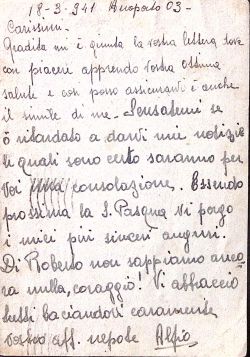 18-3-941 Aeroporto 03-
Carissimi-
Gradita mi è giunta la vostra lettera dove
con piacere apprendo vostra ottima
salute e così posso assicurarvi è anche
il simile di me. Scusatemi se
ò ritardato a darvi mie notizie
le quali sono certo saranno per
voi una consolazione. Essendo
prossima la S. Pasqua vi porgo
i miei più sinceri auguri.
Di Roberto non sappiamo anco
ra nulla, coraggio! Vi abbraccio
tutti baciandovi caramente
vostro aff. nepote Alfio